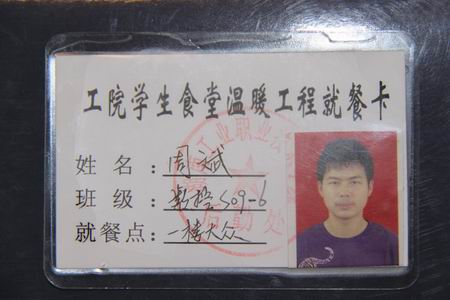 工院学生食堂温暖工程就餐卡
姓 名：周文斌
班 级：数控S09-6
就餐点：一楼大众
工业职业
后勤处